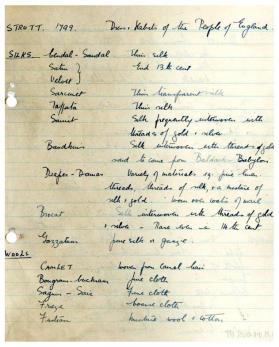 STRUTT. 1799. Dress & Habits of the People of England.
SILKS Cendal - Sandal Thin silk
Satin } End 13th cent
Velvet }
Sarcenet Thin transparent silk
Taffata Thin silk
Samit Silk frequently interwoven with
threads of gold + silver
Baudkins Silk interwoven with threads of gold
said to come from Baldach - Babylon
Diaper - Damas Variety of materials eg. fine linen
threads, threads of silk, or a mixture of
silk + gold. worn over coats of mail
Brocat Silk interwoven with threads of gold
+ silver - Rare even in 14th cent
Gazzatum fine silk or gauze.
WOOLS
CAMLET woven from camel hair
Bougram - buckram fine cloth
Sagum - Saie Fine cloth
Frize coarse cloth
Fustian wool + cotton